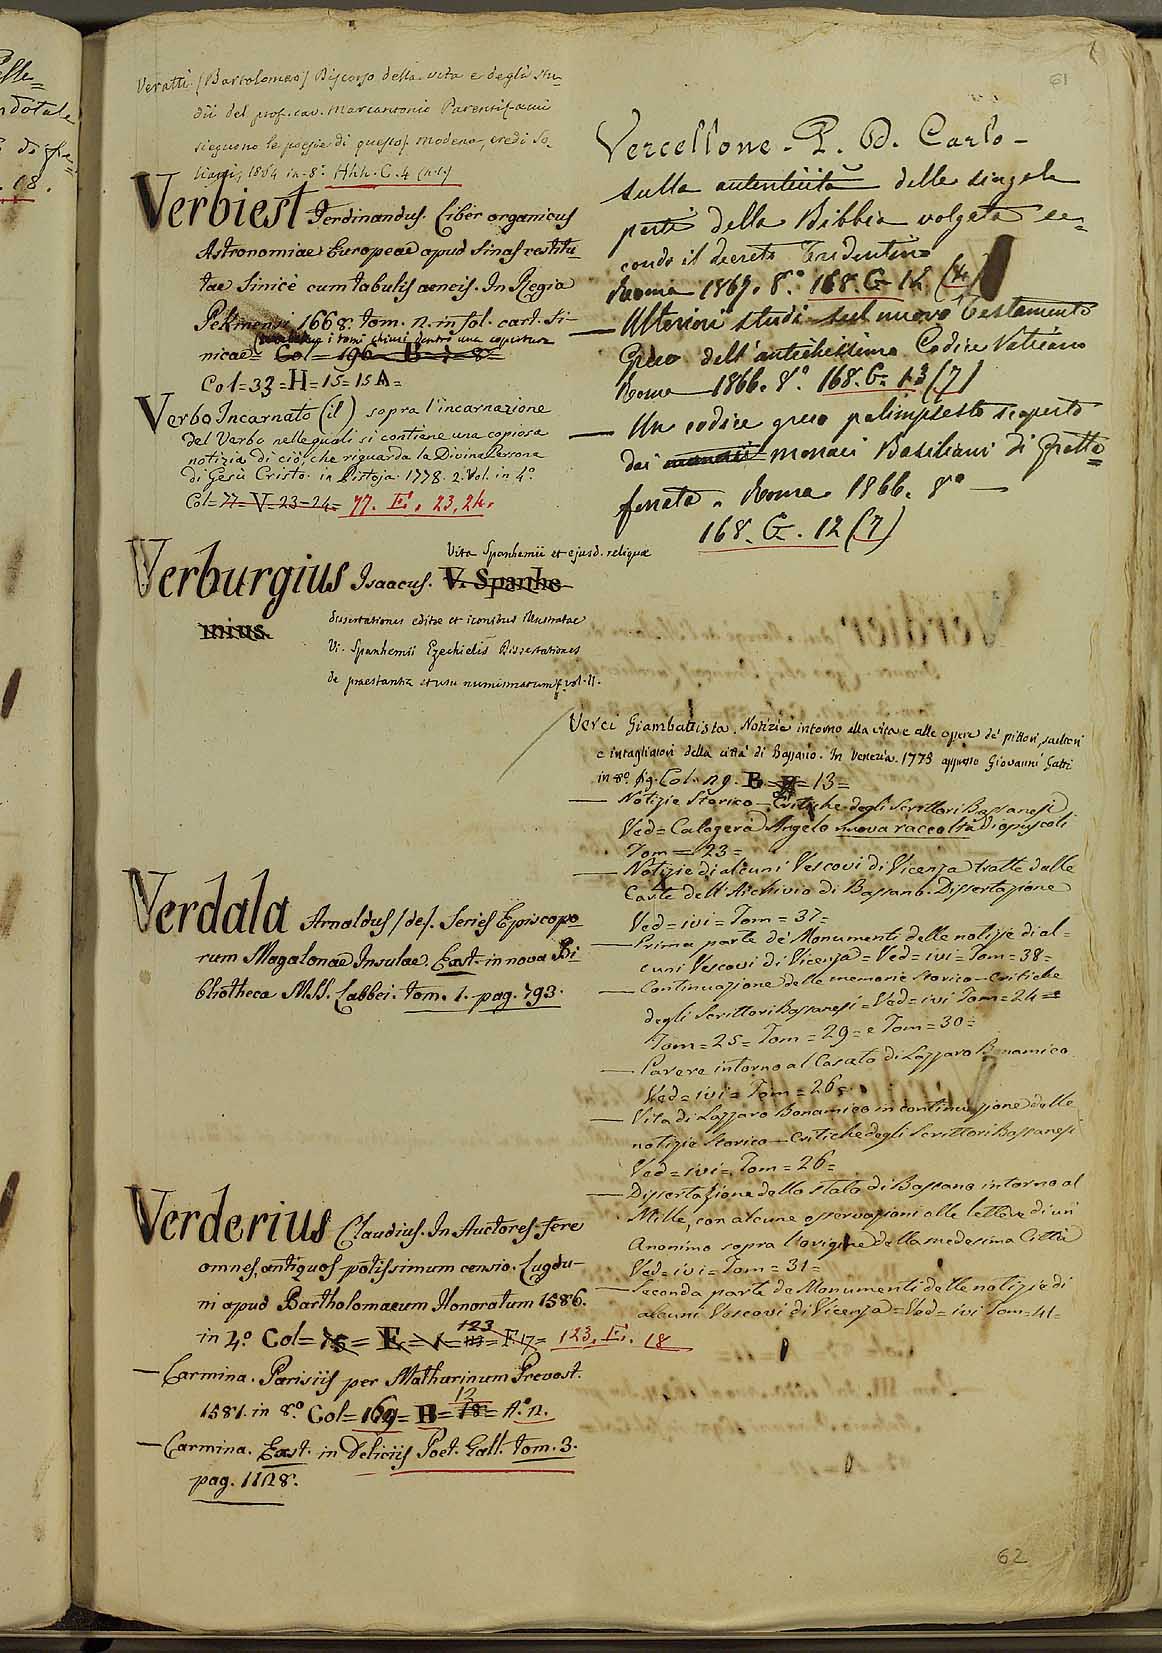 61
Veratti (Bartolomeo) Discorso della vita e degli stu-
dii del prof. cav. Marcantonio Parenti
sieguono le poesie di questo. Modena, eredi So-
liani, 1864 in-8° Hhh. C. 4 (n.1)
Verbiest Ferdinandus. Liber organicus
Astronomiae Europeae apud Sinas restitu-
tae Sinicè cum tabulis aeneis. In Regia
Pekinensi 1668. tom. 2. in fol. cart. Si-
i tomi chiusi dentro una copertura
nicae = Col = 196 = B =
Col = 33 = H = 15 = 15 A =
Verbo Incarnato (il) sopra l'incarnazione
del Verbo nelle quali si contiene una copiosa
notizia di ciò, che riguarda la Divina Persona
di Gesù Cristo. in Pistoja. 1778. 2. Vol. in 4°
Col = 77 = V = 23 = 24 = 77. E. 23. 24.
Vita Spanhemii et ejusd. reliquae
Verburgius Isaacus. V. Spanhe-
mius.
dissertationes editae et iconibus illustratae
Vi. Spanhemii Ezechielis Dissertationes
de praestantia et usu numismatum vol. II.
Verdala Arnaldus (de). Series Episcopo-
rum Magalonae Insulae. Exst. in nova Bi-
bliotheca MSS. Labbei. tom. 1. pag. 793.
Verderius Claudius. In Auctores fere
omnes, antiquos potissimum censio. Lugdu-
ni apud Bartholomaeum Honoratum 1586.
123
in 4° Col = 75 = E = F 17 = 123. E. 18
— Carmina. Parisiis per Mathurinum Prevost.
12
1581. in 8° Col = 169 = B = 18 = A.° 2.
— Carmina. Exst. in Deliciis Poet. Gall. tom. 3.
pag. 1128.
Vercellone - P. D. Carlo -
sulla autenticità delle singole
parti della Bibbia volgata se-
condo il decreto Tridentino
Roma 1867. 8° 168. G. 12 (4)
— Ulteriori studi sul nuovo Testamento
Greco dell'antichissimo Codice Vaticano
Roma 1866. 8° 168. G. 13 (7)
— Un codice greco palimpsesto scoperto
dai monaci Basiliani di Grotta-
ferrata. Roma 1866. 8° —
168. G. 12 (7)
Verci Giambattista. Notizie intorno alla vita e alle opere de' pittori, scultori
e intagliatori della città di Bassano. In Venezia. 1775 appresso Giovanni Gatti
in 8° fig. Col. 29. B = 13 =
— Notizie Storico-Critiche degli Scrittori Bassanesi
Ved = Calogerà Angelo nuova raccolta d'opuscoli
Tom = 23 =
— Notizie di alcuni Vescovi di Vicenza tratte dalle
Carte dell'Archivio di Bassano. Dissertazione
Ved = ivi = Tom = 37 =
— Prima parte de' Monumenti delle notizie di al-
cuni Vescovi di Vicenza = Ved = ivi = Tom = 38 =
— Continuazione delle memorie Storico-Critiche
degli Scrittori Bassanesi = Ved = ivi Tom = 24 = e
Tom = 25 = Tom = 29 = e Tom = 30 =
— Parere intorno al Casato di Lazzaro Bonamico
Ved = ivi = Tom = 26 =
— Vita di Lazzaro Bonamico in continuazione delle
notizie Storico-Critiche degli Scrittori Bassanesi
Ved = ivi = Tom = 26 =
— Dissertazione dello stato di Bassano intorno al
Mille, con alcune osservazioni alle lettere di un
Anonimo sopra l'origine della medesima Città
Ved = ivi = Tom = 31 =
— Seconda parte de Monumenti delle notizie di
alcuni Vescovi di Vicenza = Ved = ivi Tom = 41 =
62